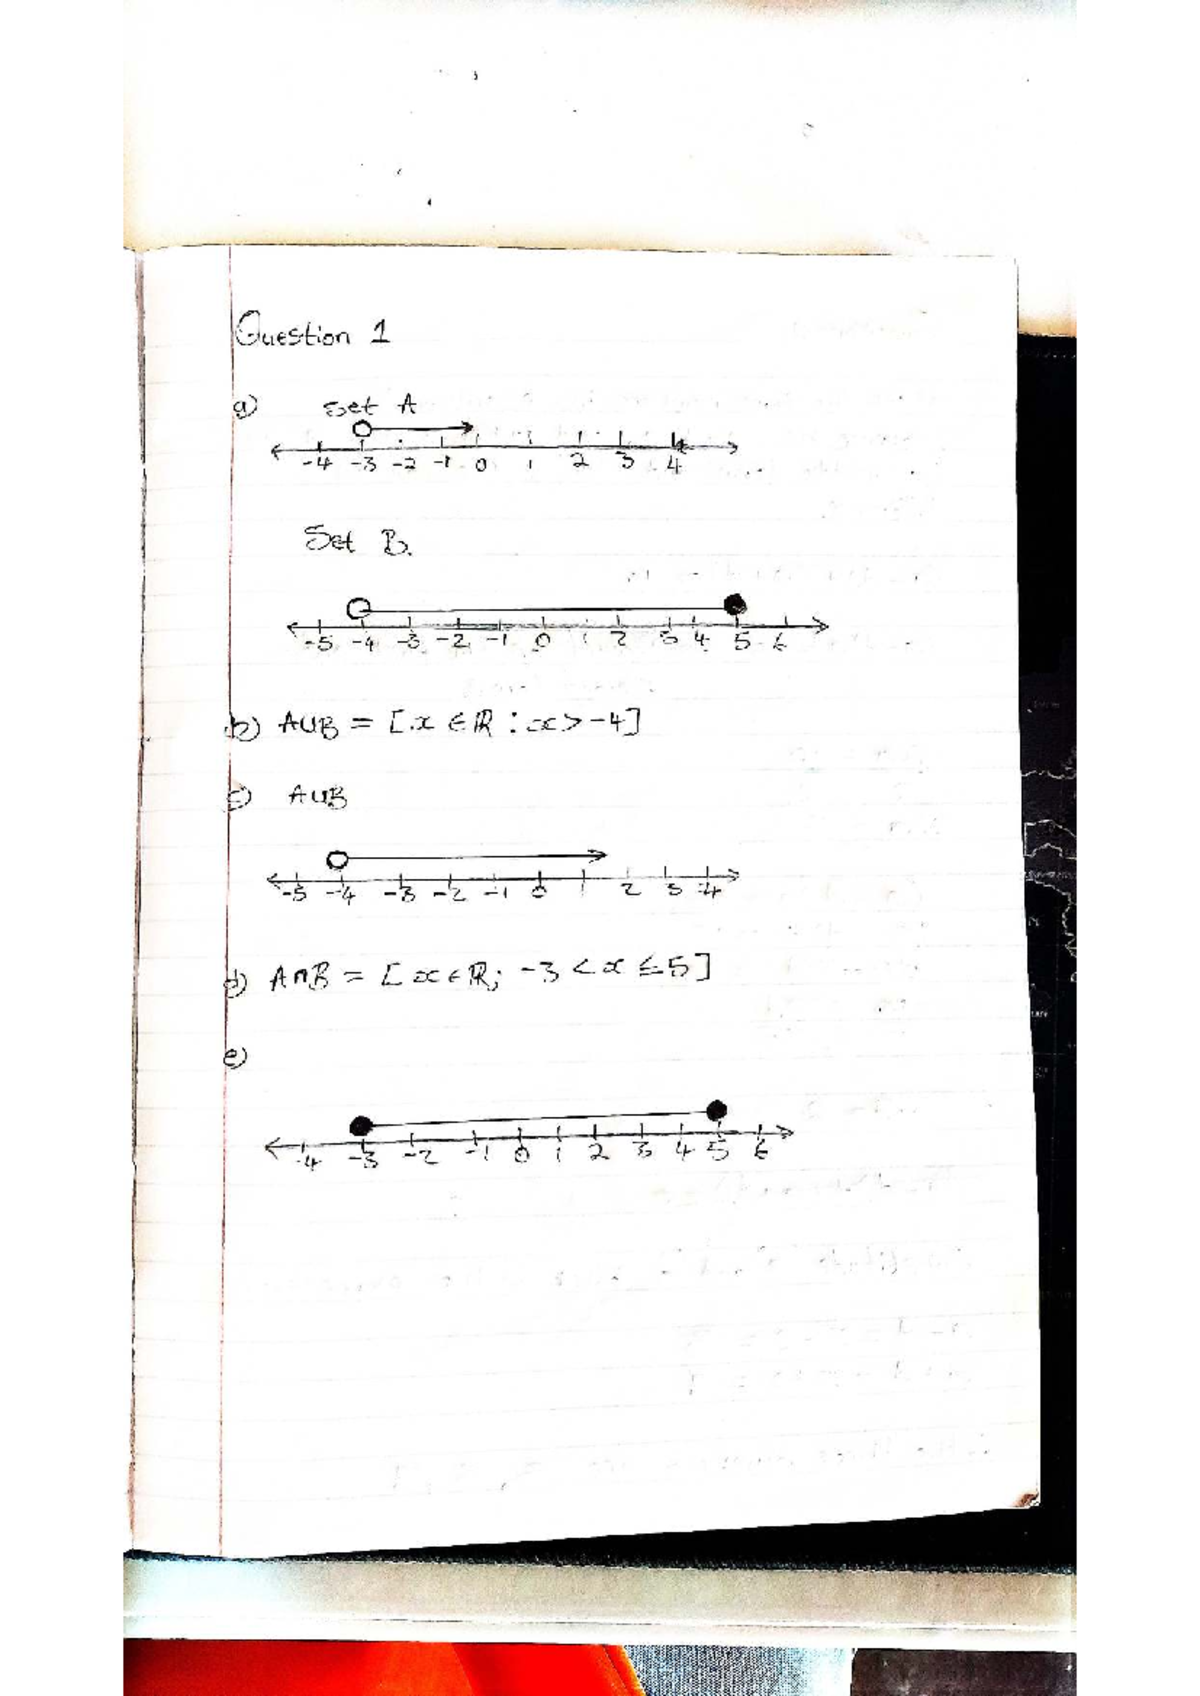 Question 1
a) Set A
-4 -3 -2 -1 0 1 2 3 4
Set B.
-5 -4 -3 -2 -1 0 1 2 3 4 5 6
b) A∪B = [x ∈ ℝ : x > -4]
c) A∪B
-5 -4 -3 -2 -1 0 1 2 3 4
d) A∩B = [x ∈ ℝ; -3 < x ≤ 5]
e)
-4 -3 -2 -1 0 1 2 3 4 5 6